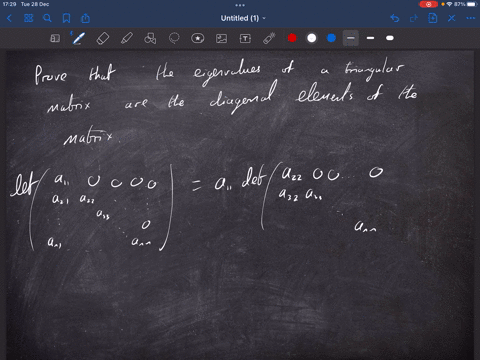 17:29 Tue 28 Dec
87%
Untitled (1)
Prove that the eigenvalues of a triangular
matrix are the diagonal elements of the
matrix.
det ( a₁₁ 0 0 0 0 ) = a₁₁ det ( a₂₂ 0 0 ... 0
a₂₁ a₂₂ a₃₂ a₃₃
a₃₃
0
aₙ₁ aₙₙ aₙₙ